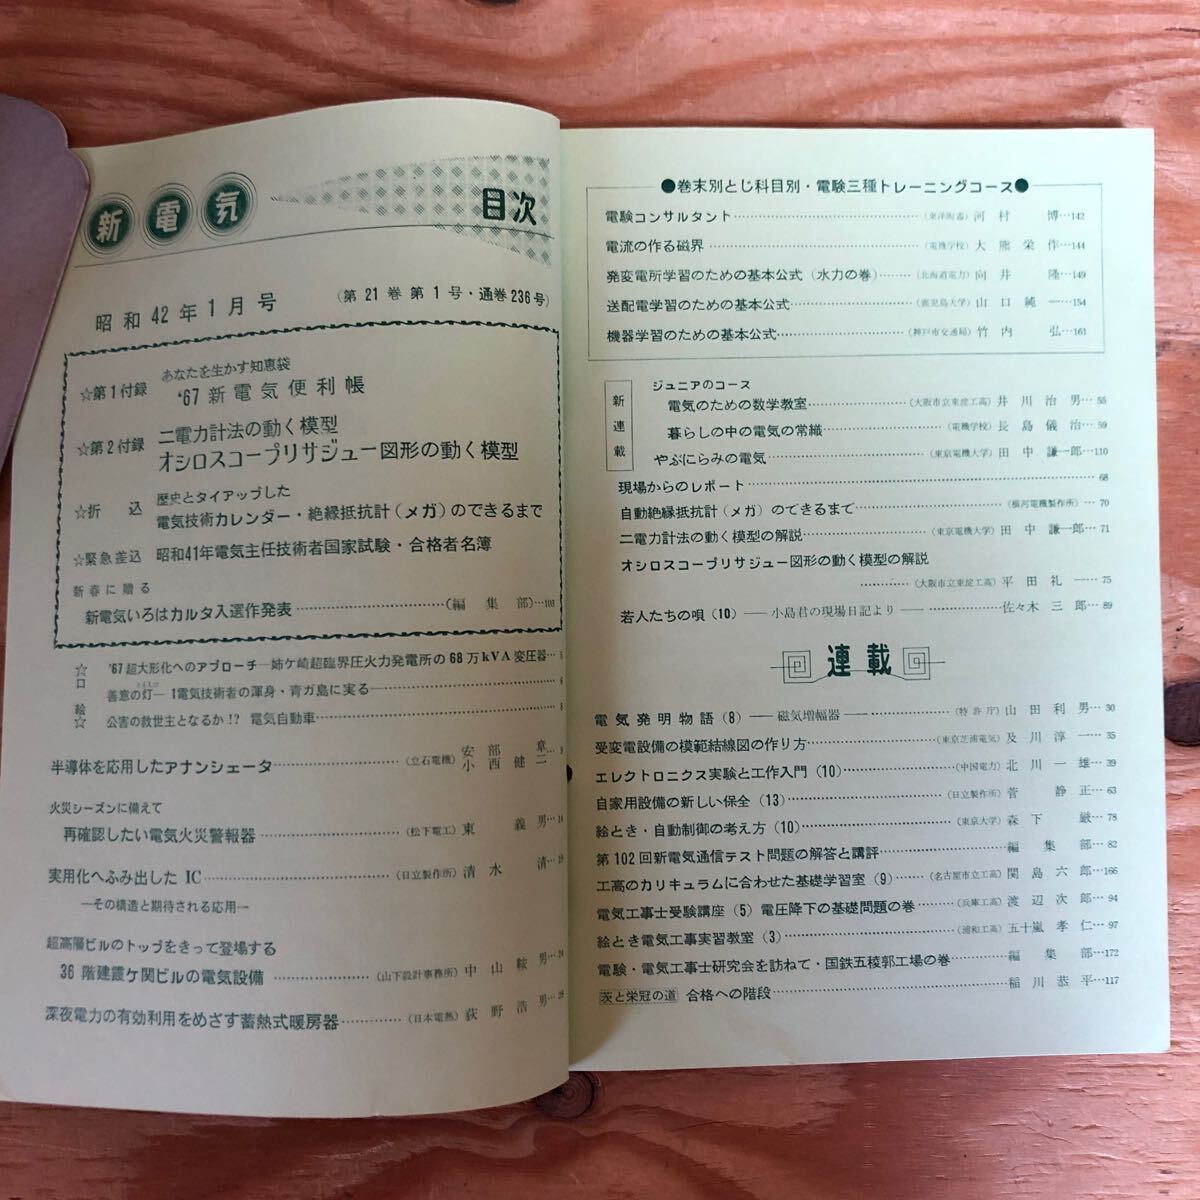 新電気
目次
昭和42年1月号 (第21巻第1号・通巻236号)
あなたを生かす知恵袋
☆第1付録 '67新電気便利帳
☆第2付録 二電力計法の動く模型
オシロスコープリサジュー図形の動く模型
歴史とタイアップした
☆折込 電気技術カレンダー・絶縁抵抗計(メガ)のできるまで
☆緊急差込 昭和41年電気主任技術者国家試験・合格者名簿
新春に贈る
新電気いろはカルタ入選作発表……(編集部)…103
☆口絵☆
'67超大形化へのアプローチ—姉ケ崎超臨界圧火力発電所の68万kVA変圧器…5
善意の灯—1電気技術者の渾身・青ガ島に実る……6
公害の救世主となるか!? 電気自動車……8
半導体を応用したアナンシェータ……(立石電機) 安部章 小西健二…9
火災シーズンに備えて
再確認したい電気火災警報器……(松下電工) 東義男…14
実用化へふみ出したIC……(日立製作所) 清水清…19
—その構造と期待される応用—
超高層ビルのトップをきって登場する
36階建霞ケ関ビルの電気設備……(山下設計事務所) 中山鞍男…24
深夜電力の有効利用をめざす蓄熱式暖房器……(日本電熱) 荻野浩男…28
●巻末別とじ科目別・電験三種トレーニングコース●
電験コンサルタント……(東洋陶器) 河村博…142
電流の作る磁界……(電機学校) 大熊栄作…144
発変電所学習のための基本公式(水力の巻)……(北海道電力) 向井隆…149
送配電学習のための基本公式……(鹿児島大学) 山口純一…154
機器学習のための基本公式……(神戸市交通局) 竹内弘…161
新連載
ジュニアのコース
電気のための数学教室……(大阪市立東淀工高) 井川治男…55
暮らしの中の電気の常織……(電機学校) 長島儀治…59
やぶにらみの電気……(東京電機大学) 田中謙一郎…110
現場からのレポート……68
自動絶縁抵抗計(メガ)のできるまで……(横河電機製作所)…70
二電力計法の動く模型の解説……(東京電機大学) 田中謙一郎…71
オシロスコープリサジュー図形の動く模型の解説
……(大阪市立東淀工高) 平田礼一…75
若人たちの唄(10)—小島君の現場日記より—……佐々木三郎…89
連載
電気発明物語(8)—磁気増幅器—……(特許庁) 山田利男…30
受変電設備の模範結線図の作り方……(東京芝浦電気) 及川淳一…35
エレクトロニクス実験と工作入門(10)……(中国電力) 北川一雄…39
自家用設備の新しい保全(13)……(日立製作所) 菅静正…63
絵とき・自動制御の考え方(10)……(東京大学) 森下巌…78
第102回新電気通信テスト問題の解答と講評……編集部…82
工高のカリキュラムに合わせた基礎学習室(9)……(名古屋市立工高) 関島六郎…166
電気工事士受験講座(5)電圧降下の基礎問題の巻……(兵庫工高) 渡辺次郎…94
絵とき電気工事実習教室(3)……(浦和工高) 五十嵐孝仁…97
電験・電気工事士研究会を訪ねて・国鉄五稜郭工場の巻……編集部…172
茨と栄冠の道 合格への階段……稲川恭平…117